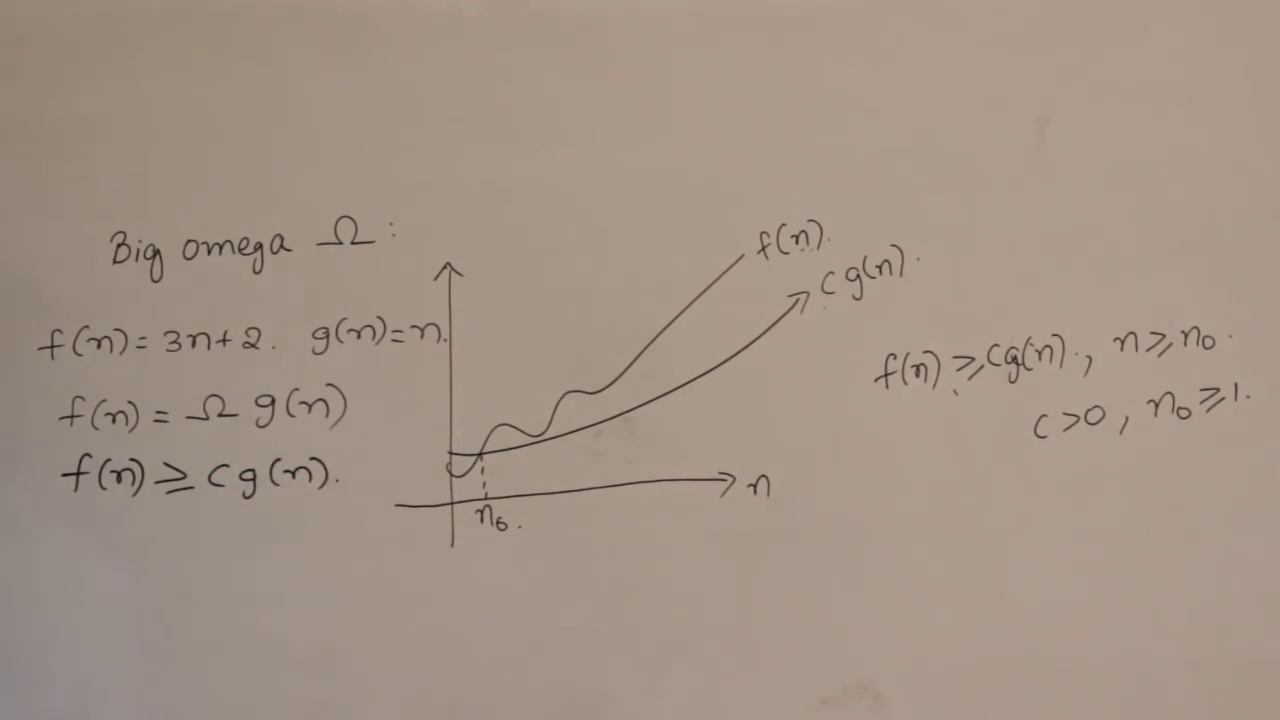 Big omega Ω :
f(n) = 3n+2. g(n)=n.
f(n) = Ω g(n)
f(n) ≥ c g(n).
f(n).
c g(n).
n
n₀.
f(n) ≥ cg(n)., n ≥ n₀.
c >0, n₀ ≥ 1.